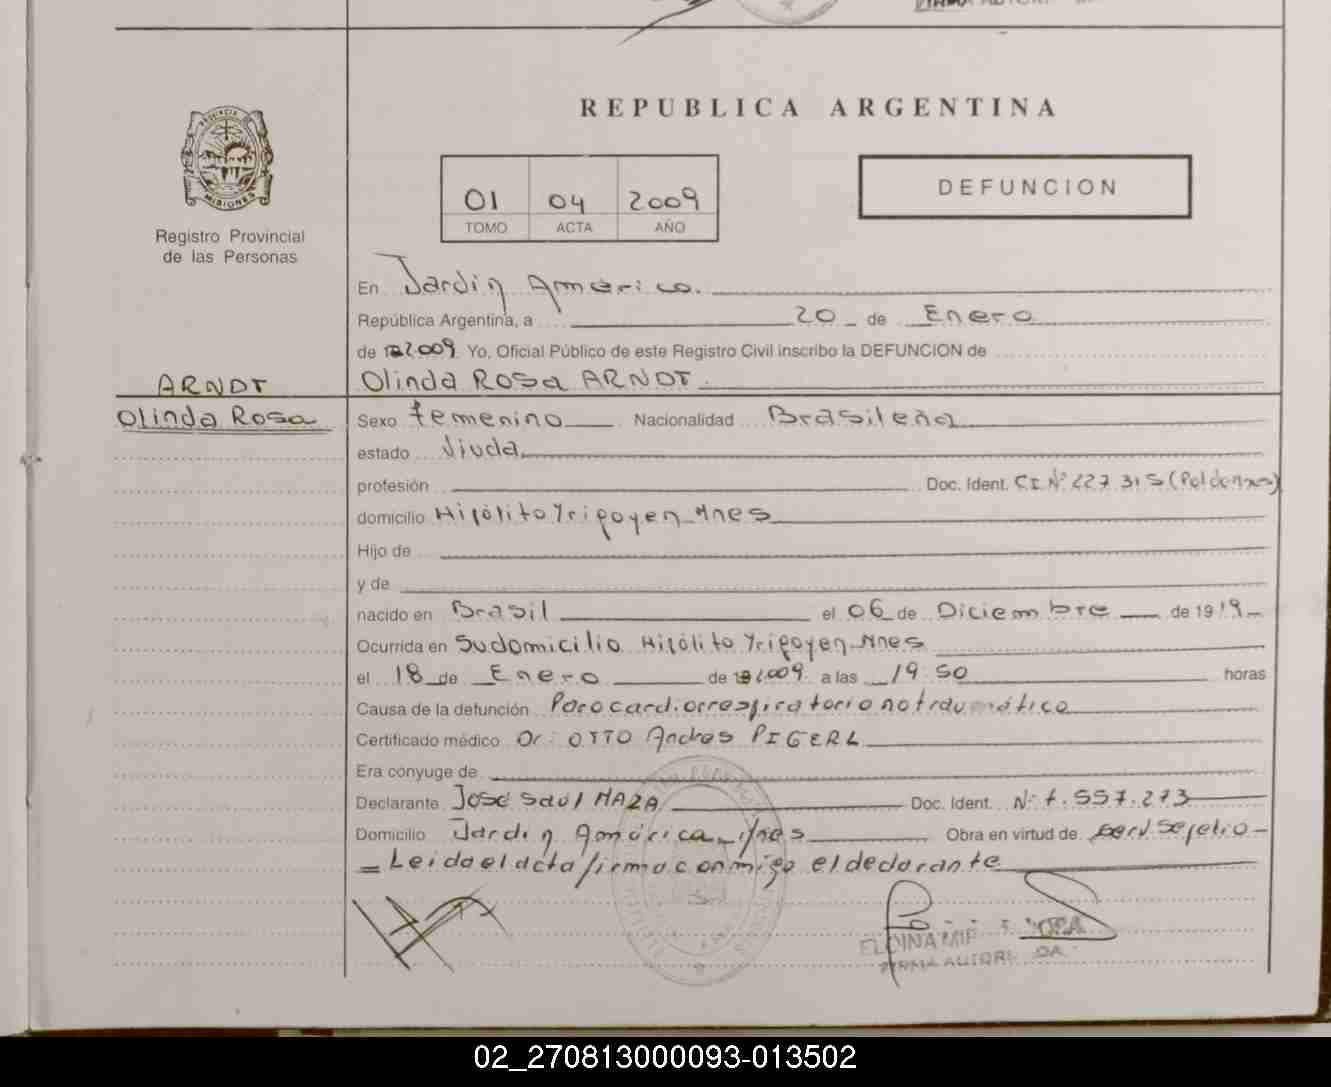 REPUBLICA ARGENTINA
PROVINCIA D
MISIONES
Registro Provincial
de las Personas
01 04 2009
TOMO ACTA AÑO
DEFUNCION
En Jardin América.
República Argentina, a 20 de Enero
de 2009. Yo, Oficial Público de este Registro Civil inscribo la DEFUNCION de
ARNDT
Olinda Rosa
Olinda Rosa ARNDT.
Sexo femenino Nacionalidad Brasileña
estado Viuda
profesión Doc. Ident. C.I. Nº 227.315 (Pol de Mnes)
domicilio Hipólito Yrigoyen Mnes
Hijo de
y de
nacido en Brasil el 06 de Diciembre de 1919
Ocurrida en Su domicilio Hipólito Yrigoyen Mnes
el 18 de Enero de 2009 a las 19 50 horas
Causa de la defunción Paro cardiorrespiratorio no traumático
Certificado médico Dr: OTTO Andres PIGERL
Era cónyuge de
Declarante José Saúl MAZA Doc. Ident. Nº 7.557.273
Domicilio Jardin América Mnes Obra en virtud de Serv. Sepelio
Leida el acta firma conmigo el declarante
FIRMA
02_270813000093-013502